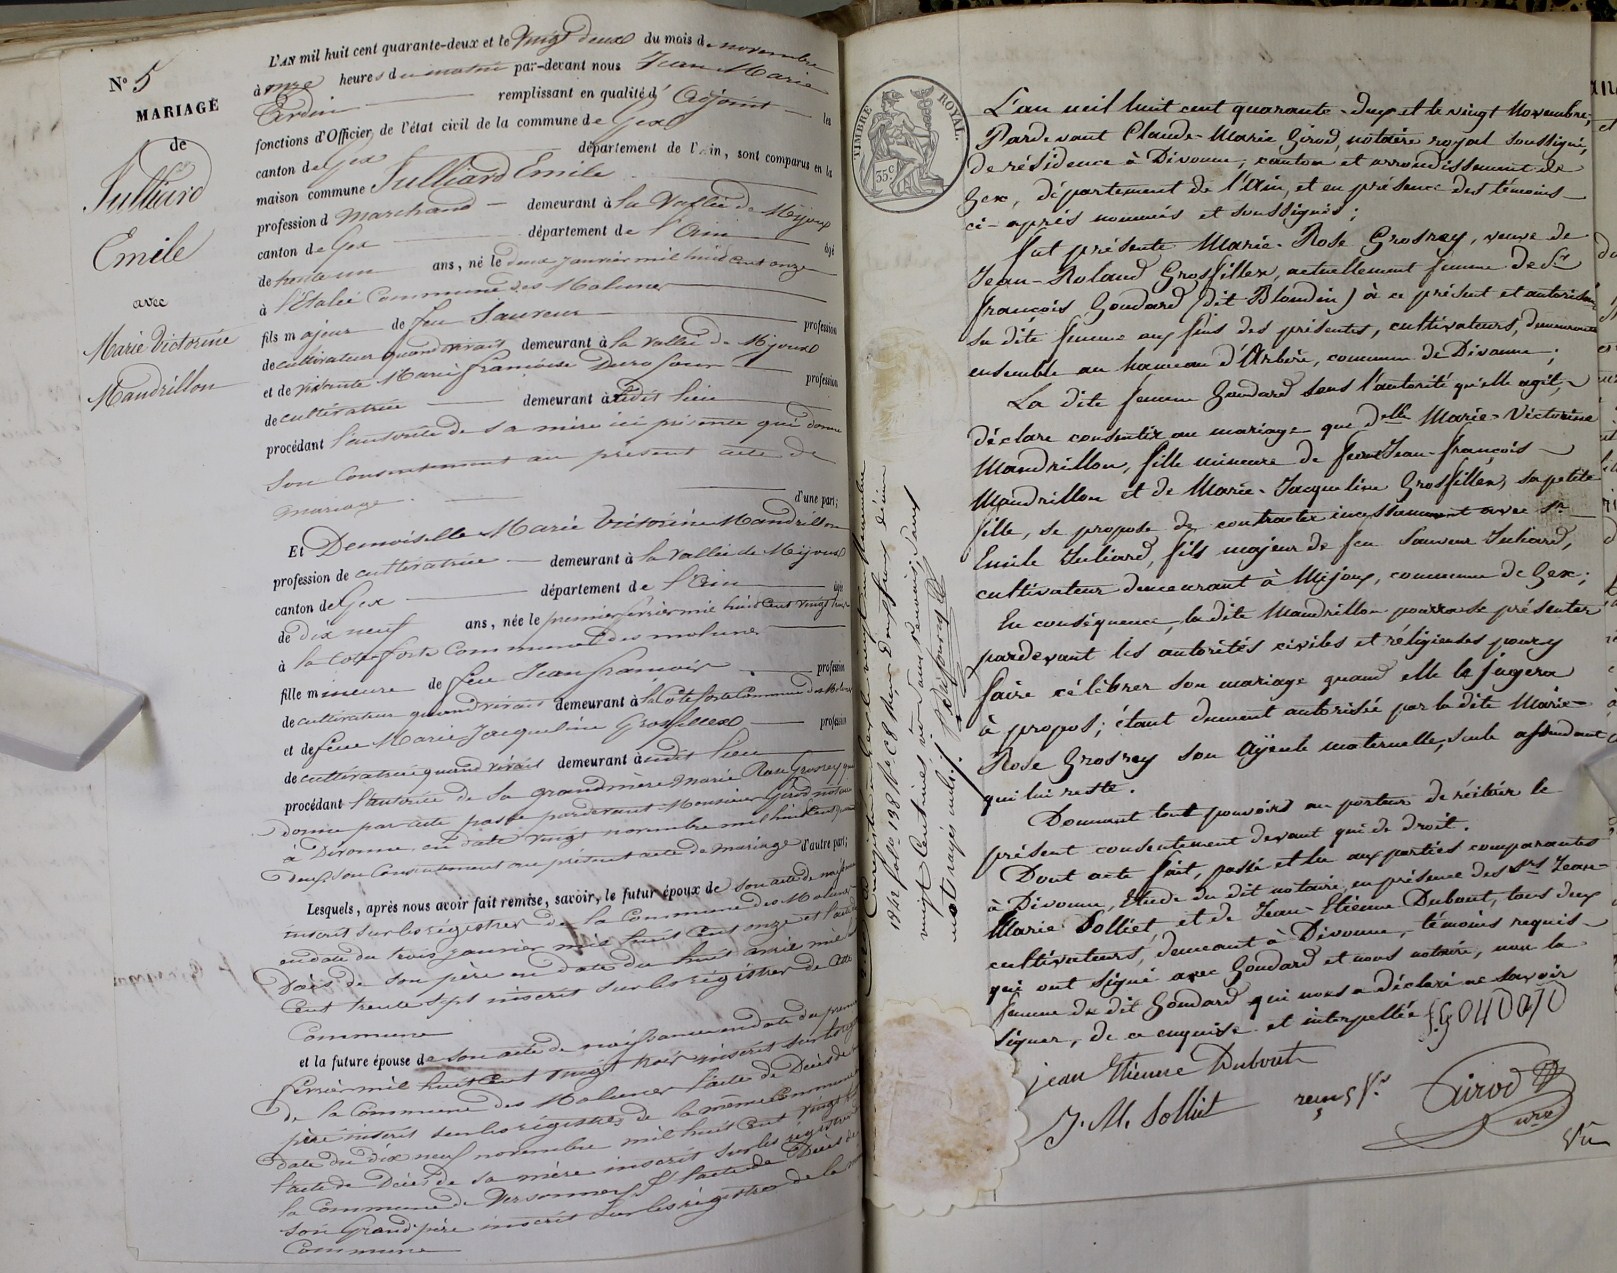 N° 5
MARIAGE
de
Julliard
Emile
avec
Marie Victorine
Mandrillon
L'AN mil huit cent quarante-deux et le vingt deux du mois de novembre
à onze heures du matin par-devant nous Jean Marie
remplissant en qualité d' Adjoint les
fonctions d'Officier de l'état civil de la commune de Gex
canton de Gex département de l'Ain, sont comparus en la
maison commune Julliard Emile
profession d Marchand demeurant à la Vallée de Mijoux
canton de Gex département de l'Ain âgé
de trente un ans, né le deux janvier mil huit cent onze
à Commune des Molunes
fils majeur de feu Sauveur profession
de cultivateur quand vivait demeurant à la vallée de Mijoux
et de vivante Marie françoise profession
de cultivatrice demeurant à dit lieu
procédant l'autorité de sa mère ici présente qui donne
son Consentement au présent acte de
mariage. d'une part;
Et Demoiselle Marie Victorine Mandrillon
profession de cultivatrice demeurant à la vallée de Mijoux
canton de Gex département de l'Ain âgé
de dix neuf ans, née le premier février mil huit cent vingt trois
à la Côte forte Commune des molunes
fille mineure de feu Jean françois profession
de cultivateur quand vivait demeurant à la Côte forte Commune des Molunes
et de feue Marie Jacqueline Grosfillex profession
de cultivatrice quand vivait demeurant à udit lieu
procédant l'autorité de sa grand mère Marie Rose Grosrey qui
donne par acte passé pardevant Monsieur Girod notaire
à Divonne en date vingt novembre mil huit cent quarante
deux son Consentement au présent acte de mariage d'autre part;
Lesquels, après nous avoir fait remise, savoir, le futur époux de son acte de naissance
inscrit sur les régistres de la Commune des Molunes
en date du trois janvier mil huit cent onze et l'acte de
Décès de son père en date du huit avril mil huit
Cent trente sept inscrit sur les régistres de cette
Commune
et la future épouse de son acte de naissance en date du premier
février mil huit cent vingt trois inscrit sur les régistres
de la Commune des Molunes l'acte de Décès de son
père inscrit sur les régistres de la même Commune en
date du dix neuf novembre mil huit cent vingt
l'acte de Décès de sa mère inscrit sur les régistres de
la Commune de Versonnex & l'acte de Décès de
son Grand père inscrit sur les régistres de la même
Commune
TIMBRE ROYAL.
35c
L'an mil huit cent quarante-deux et le vingt Novembre,
Pardevant Claude-Marie Girod, notaire royal soussigné,
de résidence à Divonne, canton et arrondissement de
Gex, département de l'Ain, et en présence des témoins
ci-après nommés et soussignés;
fut présente Marie-Rose Grosrey, veuve de
Jean-Roland Grosfillex, actuellement femme de Sr
françois Goudard (dit Blondin) à ce présent et autorisant
sa dite femme aux fins des présentes, cultivateurs, demeurants
ensemble au hameau d'Arbère, commune de Divonne;
La dite femme Goudard sous l'autorité qu'elle agit,
déclare consentir au mariage que dlle Marie-Victorine
Mandrillon, fille mineure de feu Jean-françois
Mandrillon et de Marie-Jacqueline Grosfillex, sa petite
fille, se propose de contracter incessamment avec Sr
Emile Juliard, fils majeur de feu Sauveur Juliard,
cultivateur demeurant à Mijoux, commune de Gex;
En conséquence, la dite Mandrillon pourra se présenter
pardevant les autorités civiles et réligieuses pour y
faire célébrer son mariage quand elle le jugera
à propos; étant dument autorisée par la dite Marie-
Rose Grosrey son ayeule maternelle, seule ascendant
qui lui reste.
Donnant tout pouvoirs au porteur de réitérer le
présent consentement devant qui de droit.
Dont acte fait, passé et lu aux parties comparantes
à Divonne, Etude du dit notaire, en présence des Srs Jean-
Marie Solliet, et de Jean-Etienne Dubout, tous deux
cultivateurs, demeurant à Divonne, témoins requis
qui ont signé avec Goudard et nous notaire, non la
femme du dit Goudard qui nous a déclaré ne savoir
signer, de ce enquise et interpellée.
f. GOUDARD
jean Etienne Dubout
J. M. Solliet
Girod